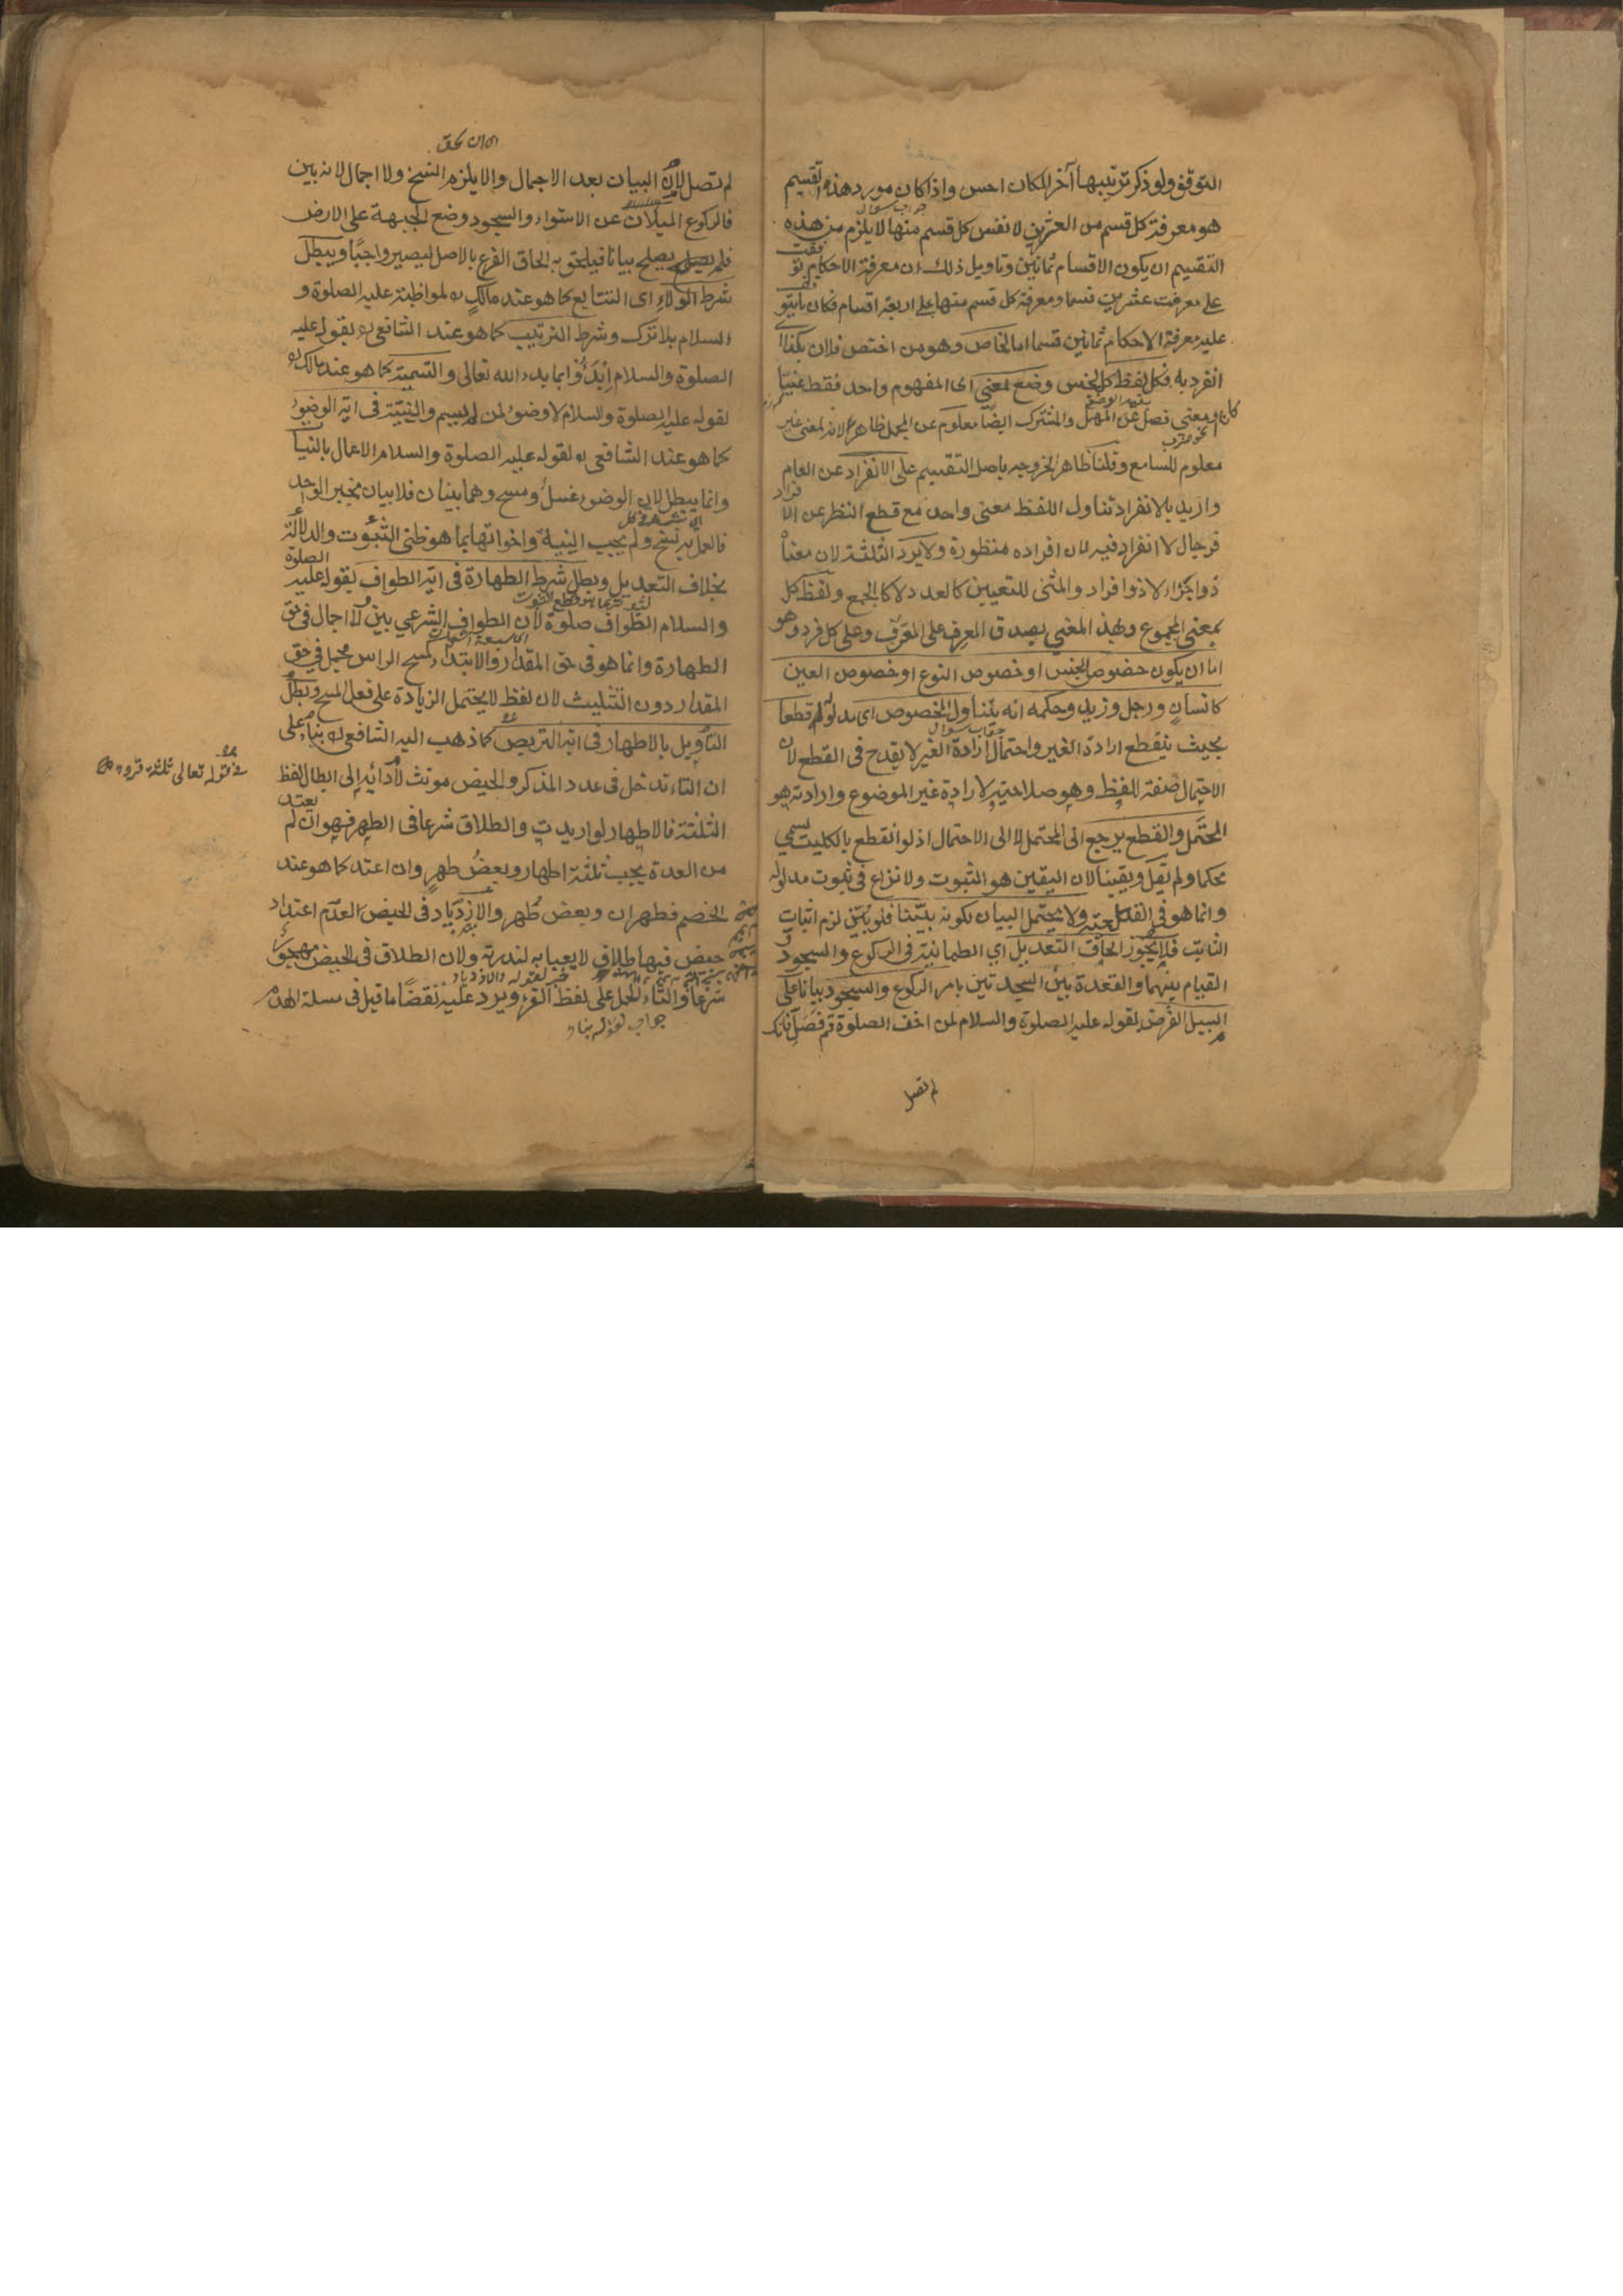 التوقف ولو ذكر ترتيبها آخرا لكان احسن واذا كان مورد هذه التقسيم
هو معرفة كل قسم من العشرين لا نفس كل قسم منها لا يلزم من هذه
جواب سوال
التقسيم ان يكون الاقسام ثمانين وتاويل ذلك ان معرفة الاحكام توقفت
على معرفت عشرين قسما ومعرفة كل قسم منها على اربعة اقسام فكان ما يتوقف
عليه معرفة الاحكام ثمانين قسما اما الخاص وهو من اختص فلان بكذا اى
انفرد به فكل لفظ كالجنس وضع لمعنى اى المفهوم واحد فقط عينا
كان او معنى فصل عن المهمل والمشترك ايضا معلوم عن المجمل ظاهرا لانه لمعنى غير
معلوم للسامع وقلنا ظاهرا لخروجه باصل التقسيم على الانفراد عن العام
واريد بالانفراد تناول اللفظ معنى واحد مع قطع النظر عن الافراد
فرجال لا انفراد فيه لان افراده منظورة ولا يرد الثلثة لان معناه
ذو اجزاء لا ذو افراد والمثنى للتعيين كالعدد لا كالجمع ولفظ كل
بمعنى المجموع وبهذ المعنى يصدق المعرف على المعرف وعلى كل فرد وهو
اما ان يكون خصوص الجنس او خصوص النوع او خصوص العين
كانسان ورجل وزيد وحكمه انه يتناول المخصوص اى مدلوله قطعا
جواب سوال
بحيث ينقطع ارادة الغير واحتمال ارادة الغير لا يقدح فى القطع لان
الاحتمال صفة للفظ وهو صلاحيته لارادة غير الموضوع وارادته هو
المحتمل والقطع يرجع الى المحتمل لا الى الاحتمال اذ لو انقطع بالكليت يسمى
محكما ولم يقل ويقينا لان اليقين هو الثبوت ولا نزاع فى ثبوت مدلوله
وانما هو فى القطعية ولا يحتمل البيان لكونه بيّنا فلو بُيّن لزم اثبات
الثابت فلا يجوز الحاق التعديل اي الطمانينة فى الركوع والسجود و
القيام بينهما والقعدة بين السجدتين بامر الركوع والسجود بيانا على
سبيل الفرض لقوله عليه الصلوة والسلام لمن اخف الصلوة قم فصل فانك
لم تصل
لم تصل لان البيان بعد الاجمال والا يلزم النسخ ولا اجمال لانه بين
فالركوع الميلان عن الاستواء والسجود وضع الجبهة على الارض
فلم يصلح بيانا فيلحق به الحاق الفرع بالاصل ليصير واجبا ويبطل
شرط الولاء اى التتابع كما هو عند مالك ره لمواظبته عليه الصلوة و
السلام بلا ترك وشرط الترتيب كما هو عند الشافعى ره لقوله عليه
الصلوة والسلام ابدؤوا بما بدء الله تعالى والتسمية كما هو عند مالك ره
لقوله عليه الصلوة والسلام لا وضوء لمن لم يسم والنية فى اية الوضوء
كما هو عند الشافعى ره لقوله عليه الصلوة والسلام الاعمال بالنيات
وانما يبطل لان الوضوء غسل ومسح وهما بينان فلا بيان بخبر الواحد
فالعمل به نسخ ولم يجب النية واخواتها بما هو ظنى الثبوت والدلالة
بخلاف التعديل وبطل شرط الطهارة فى اية الطواف لقوله عليه الصلوة
والسلام الطواف صلوة لان الطواف الشرعي بين لا اجمال فى حق
الطهارة وانما هو فى حق المقدار والابتداء كمسح الراس مجمل فى حق
المقدار دون التثليث لان لفظ لا يحتمل الزيادة على فعل المسح وبطل
التأويل بالاطهار فى اية التربص كما ذهب اليه الشافعى ره بناء على
فى قوله تعالى ثلثة قروء
ان التاء تدخل فى عدد المذكر والحيض مونث لادائه الى ابطال لفظ
الثلثة فالاطهار لو اريدت والطلاق شرعا فى الطهر فهو ان لم يعتد
من العدة يجب ثلثة اطهار وبعض طهر وان اعتد كما هو عند
الخصم فطهران وبعض طهر والازدياد فى الحيض لعدم اعتداد
حيض فيها طلاق لا يعبا به لندرته ولان الطلاق فى الحيض مهجور
شرعا والتاء للحمل على لفظ القرء ويرد علينا نقضا ما قيل فى مسلة الهدم
جواب لقوله بناء